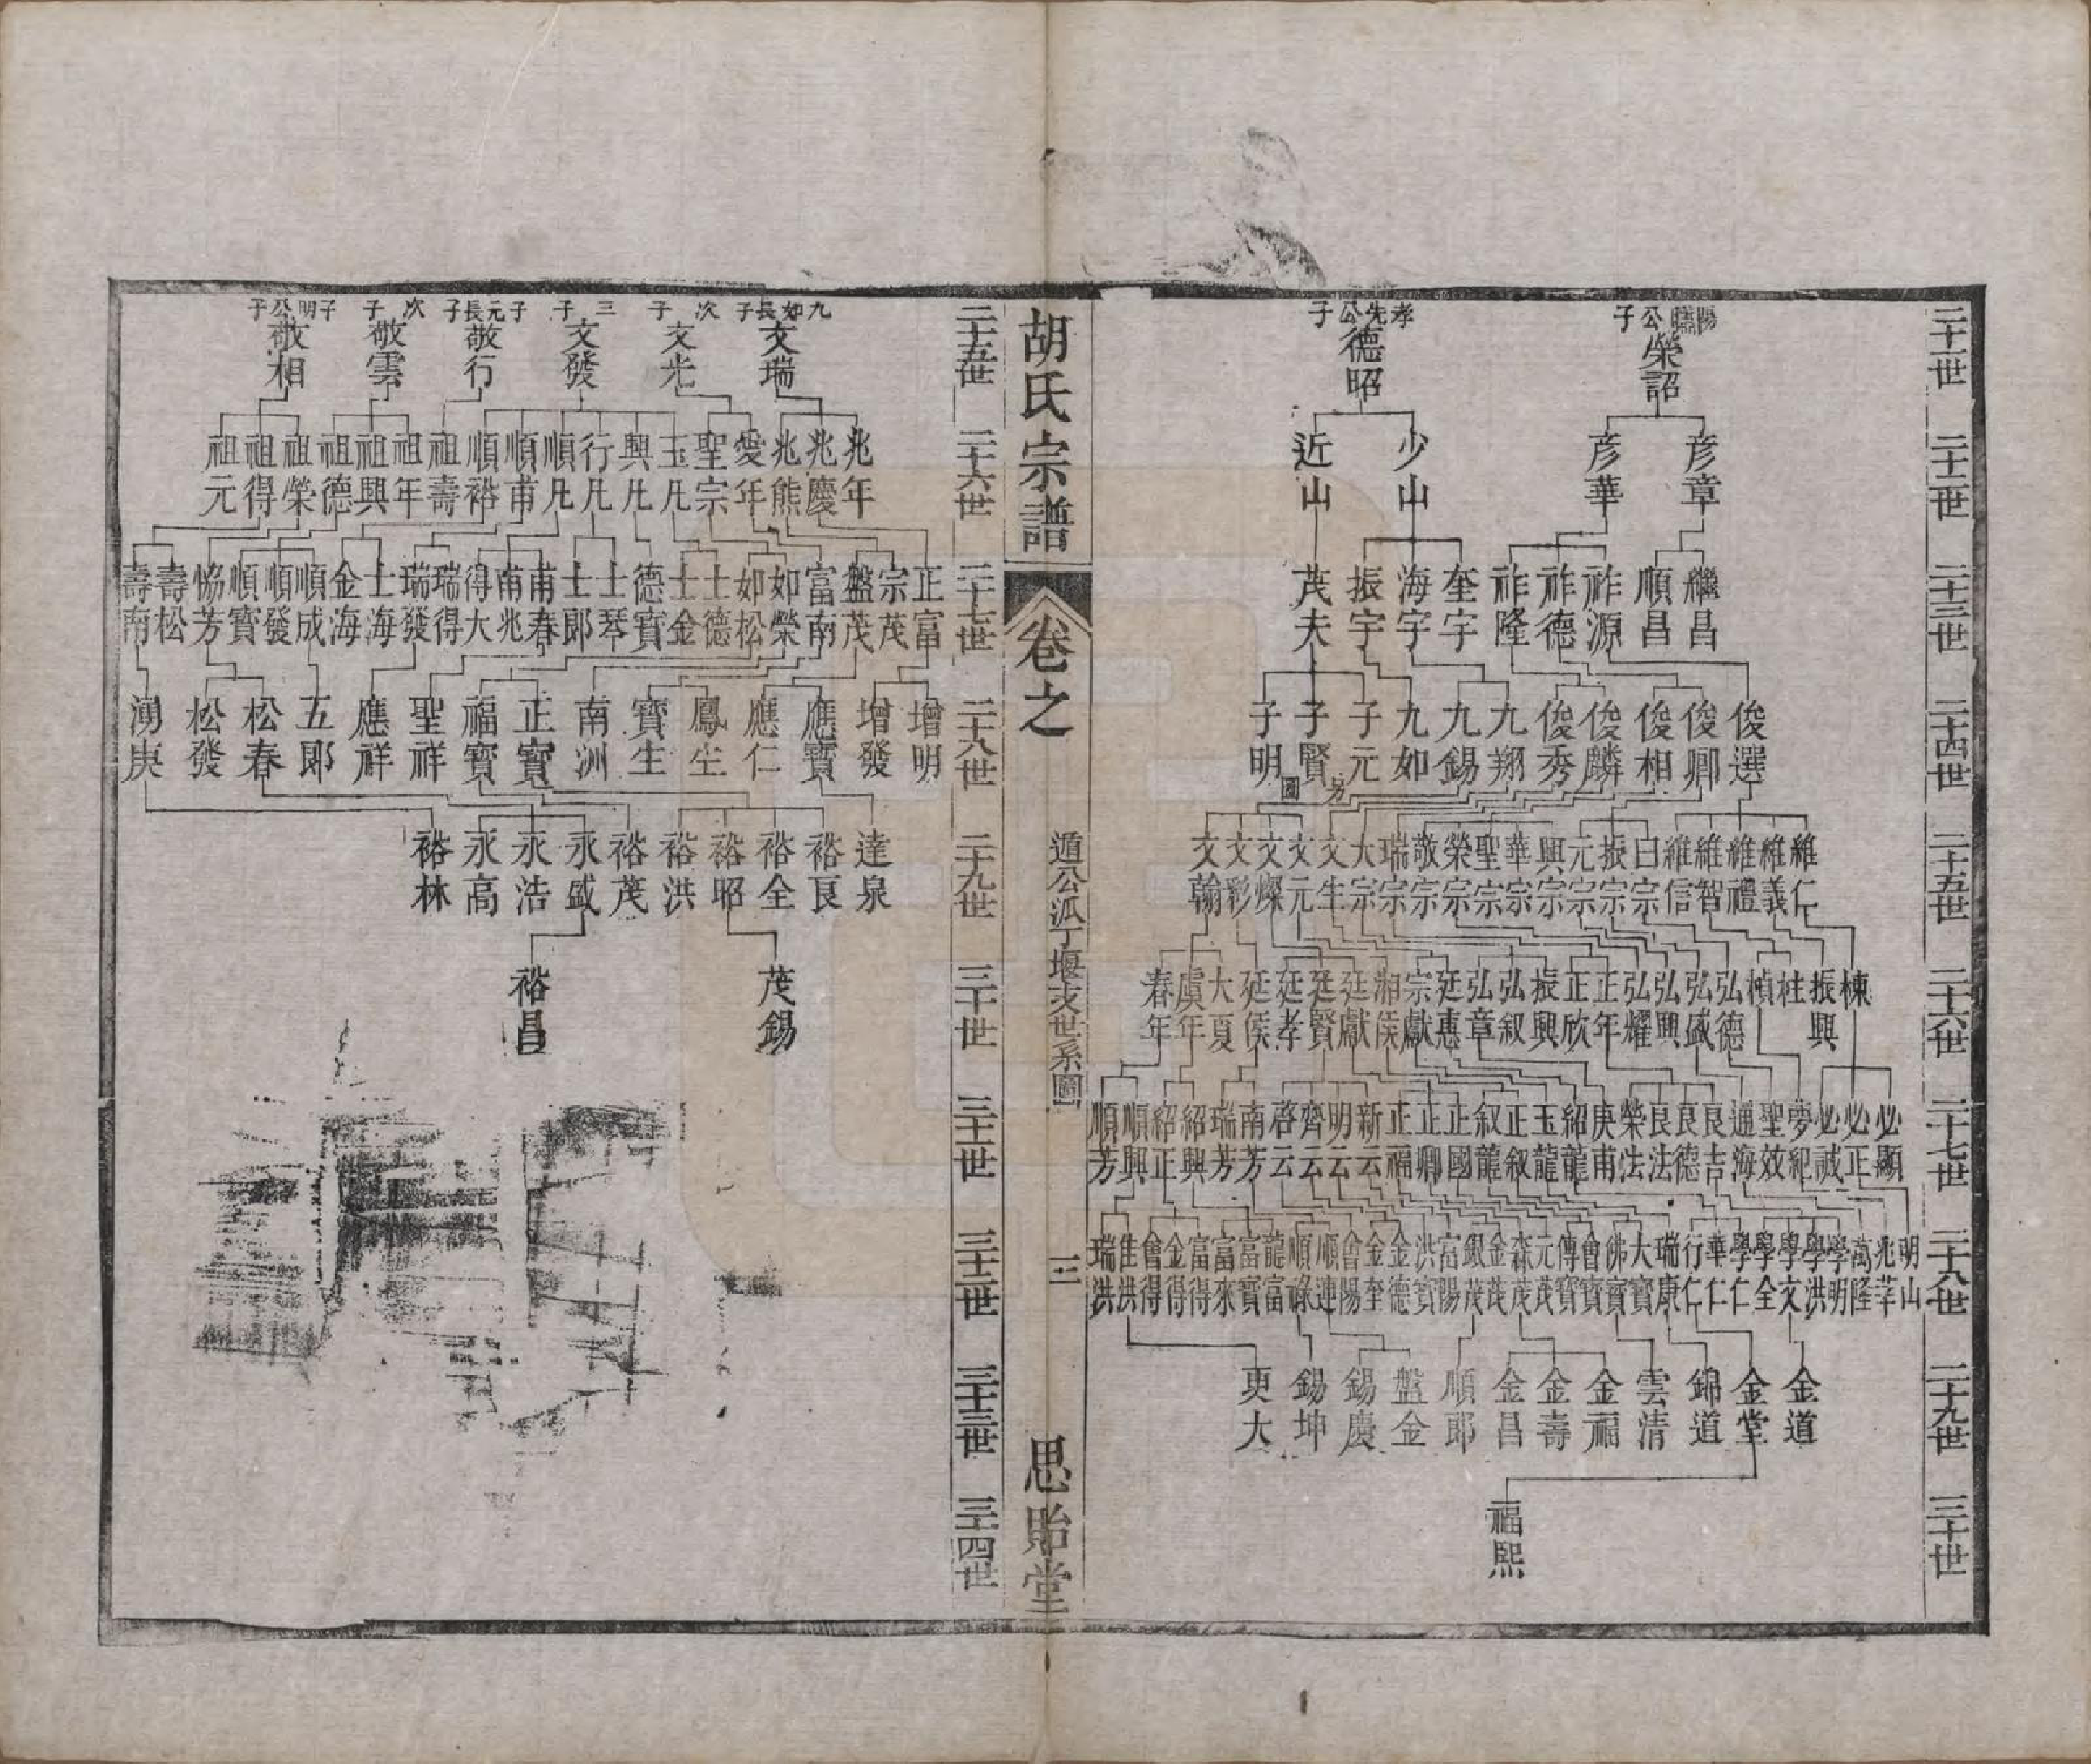 二十一世
陽曦公子榮詔
孝先公子德昭
二十二世
彥章 彥華 少山 近山
二十三世
繼昌 順昌 祚源 祚德 祚隆 奎宇 海宇 振宇 茂夫
二十四世
俊選 俊卿 俊相 俊麟 俊秀 九翔 九錫 九如 子元 子賢 子明
另圖
二十五世
維仁 維義 維禮 維智 維信 曰宗 振宗 元宗 興宗 華宗 聖宗 榮宗 敬宗 瑞宗 大宗 文生 文元 文燦 文彩 文翰
二十六世
棟 振興 柱 楨 弘德 弘盛 弘興 弘耀 正年 正欣 振興 弘叙 弘章 廷惠 宗獻 湘侯 廷獻 廷賢 廷孝 廷侯 大夏 虞年 春年
二十七世
必顯 必正 必誠 夢紀 聖效 通海 良吉 良德 良法 榮法 庚甫 紹龍 玉龍 正叙 叙龍 正國 正卿 正福 新云 明云 齊云 啓云 南芳 瑞芳 紹興 紹正 順興 順芳
二十八世
明山 兆莘 萬隆 學明 學洪 學文 學全 學仁 華仁 行仁 瑞康 大寶 佛寶 會寶 傳寶 元茂 森茂 金茂 銀茂 富陽 洪寶 金德 金奎 會陽 順連 順祿 龍富 富寶 富來 富得 金得 會得 佳洪 瑞洪
二十九世
金道 金堂 錦道 雲清 金福 金壽 金昌 順郎 盤金 錫慶 錫坤 更大
三十世
福熙
胡氏宗譜
卷之
遁公派丁堰支世系圖
三
思貽堂
二十五世
九如長子文瑞
次子文光
三子文發
子元長子敬行
次子敬雲
子明公子敬相
二十六世
兆年 兆慶 兆熊 愛年 聖宗 玉凡 興凡 行凡 順凡 順甫 順裕 祖壽 祖年 祖興 祖德 祖榮 祖得 祖元
二十七世
正富 宗茂 盤茂 富南 如榮 如松 士德 士金 德寶 士琴 士郎 甫春 甫兆 得大 瑞得 瑞發 士海 金海 順成 順發 順寶 恊芳 壽松 壽南
二十八世
增明 增發 應寶 應仁 鳳生 寶生 南洲 正寶 福寶 聖祥 應祥 五郎 松春 松發 湧庚
二十九世
達泉 裕良 裕全 裕昭 裕洪 裕茂 永盛 永浩 永高 裕林
三十世
茂錫 裕昌
三十一世
三十二世
三十三世
三十四世